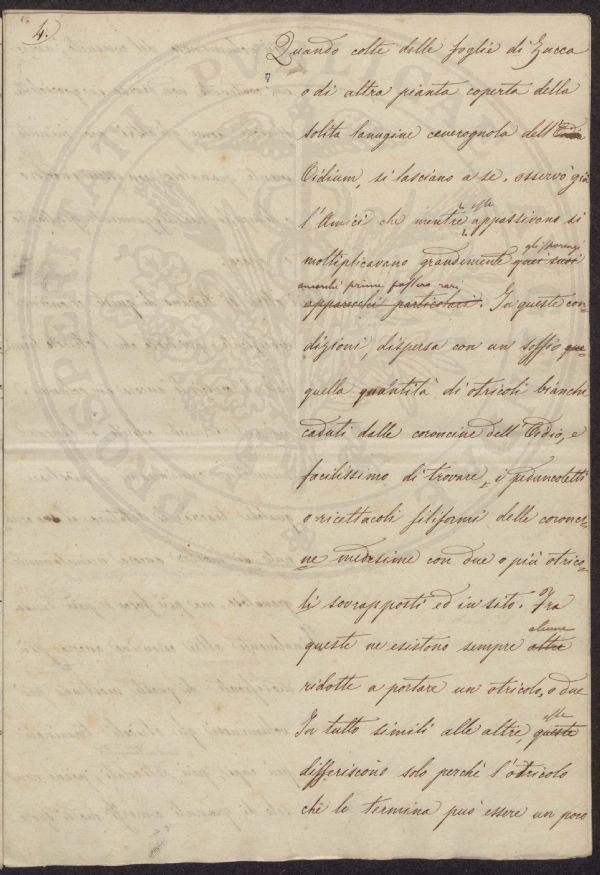 4.
Quando colte delle foglie di Zucca
o di altra pianta coperta della
solita lanugine cenerognola dell'
Oidium, si lasciano a se, osservò già
l'Amici che mentre esse appassivano si
moltiplicavano grandemente quei suoi gli sporangi
apparecchi particolari. anzichè prima fossero rari. In queste con-
dizioni, dispersa con un soffio que-
quella quantità di otricoli bianchi
caduti dalle coroncine dell'Oidio, è
facilissimo di trovare, i peduncoletti
o ricettacoli filiformi delle coronci-
ne medesime con due o più otrico-
li sovrapposti ed in sito. Or fra
queste ne esistono sempre altre alcune
ridotte a portare un otricolo, o due
In tutto simili alle altre, queste esse
differiscono solo perchè l'otricolo
che le termina può essere un poco
PROSPERITATI PUBLICAE